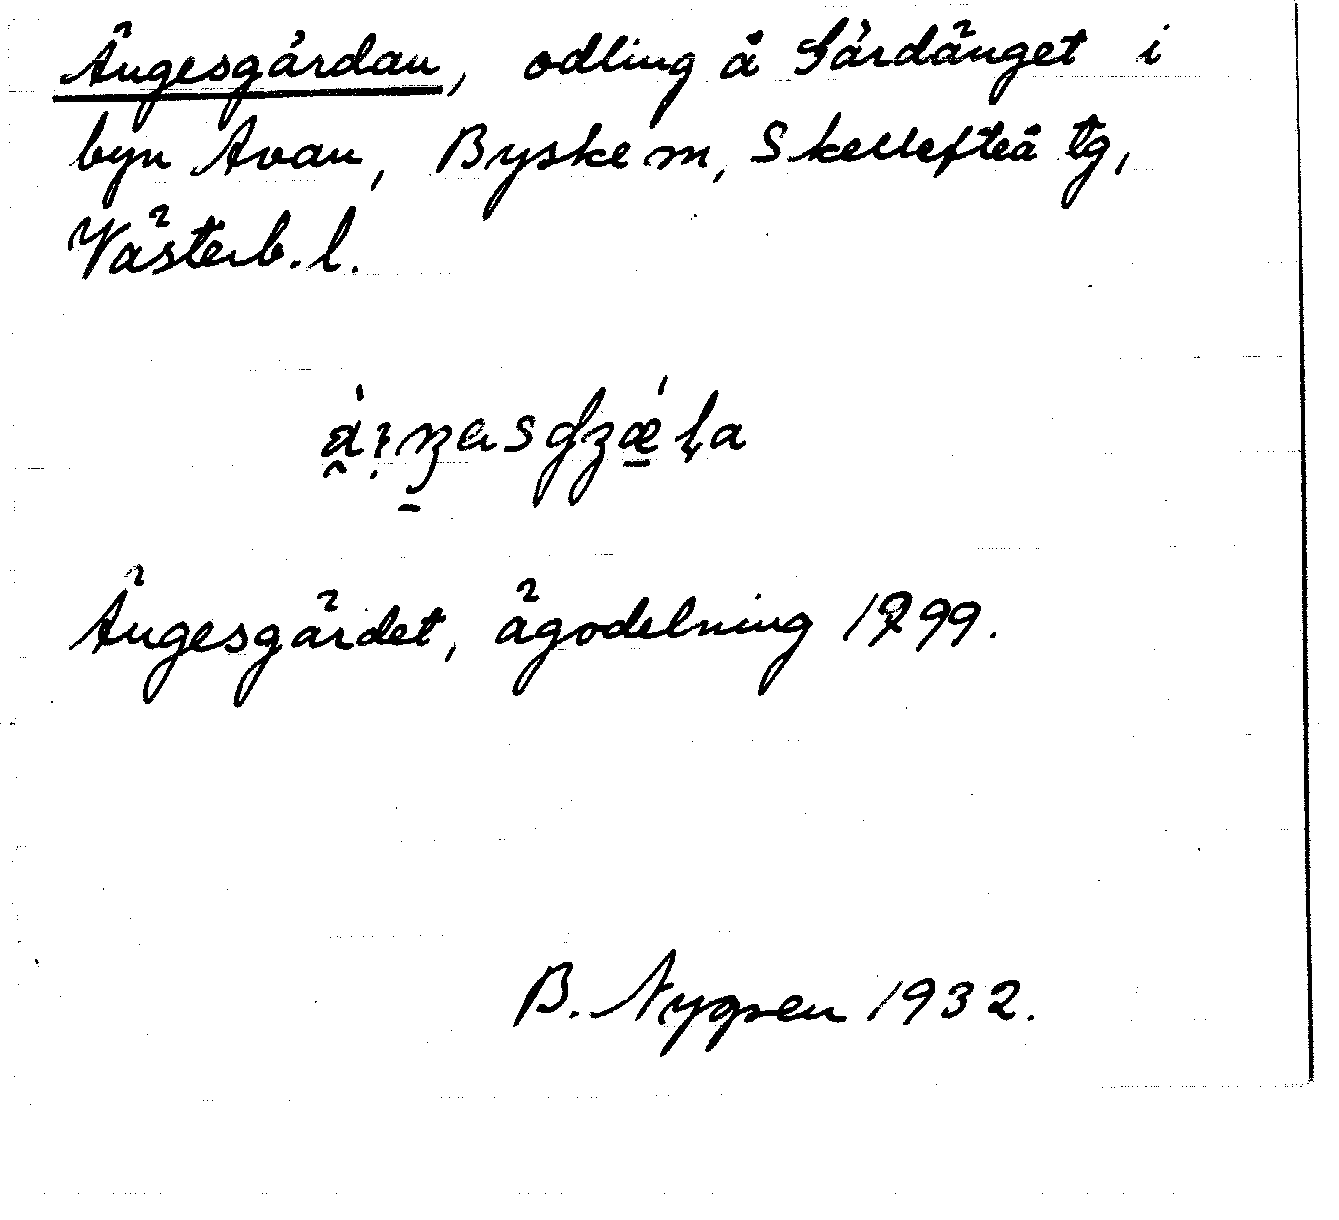 Ängesgärdan, odling å Särdänget i
byn Avan, Byske sn, Skellefteå tg,
Västerb. l.
Ängesgärdet, ägodelning 1799.
B. Nygren 1932.